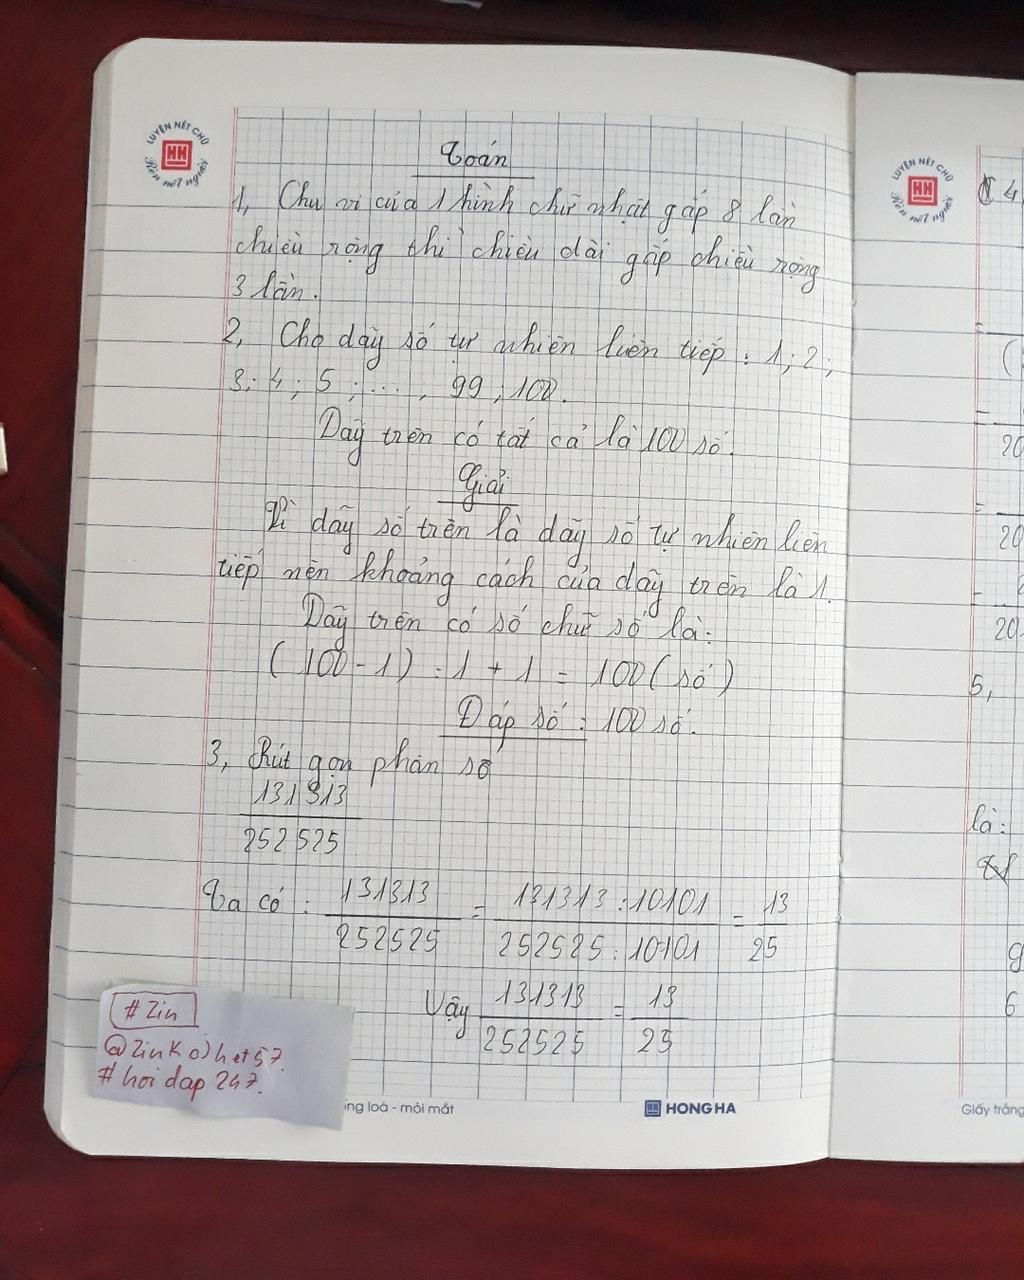 LUYỆN NÉT CHỮ
HH
Rèn nết người
Toán
1, Chu vi của 1 hình chữ nhật gấp 8 lần
chiều rộng thì chiều dài gấp chiều rộng
3 lần.
2, Cho dãy số tự nhiên liên tiếp : 1 ; 2 ;
3 ; 4 ; 5 ; ... ; 99 ; 100.
Dãy trên có tất cả là 100 số.
Giải
Vì dãy số trên là dãy số tự nhiên liên
tiếp nên khoảng cách của dãy trên là 1.
Dãy trên có số chữ số là:
( 100 - 1 ) : 1 + 1 = 100 ( số )
Đáp số : 100 số.
3, Rút gọn phân số
131313
252525
Ta có : 131313/252525 = 131313 : 10101/252525 : 10101 = 13/25
Vậy 131313/252525 = 13/25
# Zin
#hoi dap 247.
loá - mỏi mắt
HH HONG HA
LUYỆN NÉT CHỮ
HH
Rèn nết người
4
=
(
-
20
=
20
-
20
5,
là:
g
6
Giấy trắng